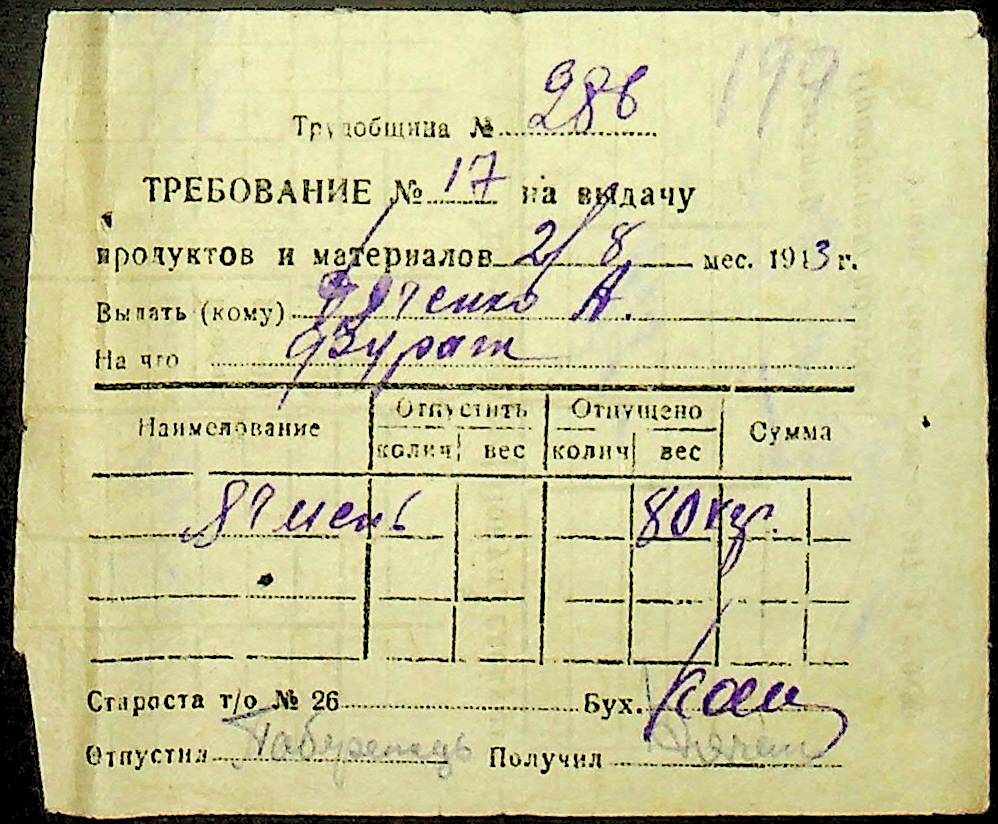 199
Трудобщина № 286
ТРЕБОВАНИЕ № 17 на выдачу
продуктов и материалов 2/8 мес. 1943 г.
Выдать (кому) А.
На что фураж
Наименование Отпустить Отпущено Сумма
колич вес колич вес
Ячмень 80 кгр.
Староста т/о № 26 Бух.
Отпустил Получил